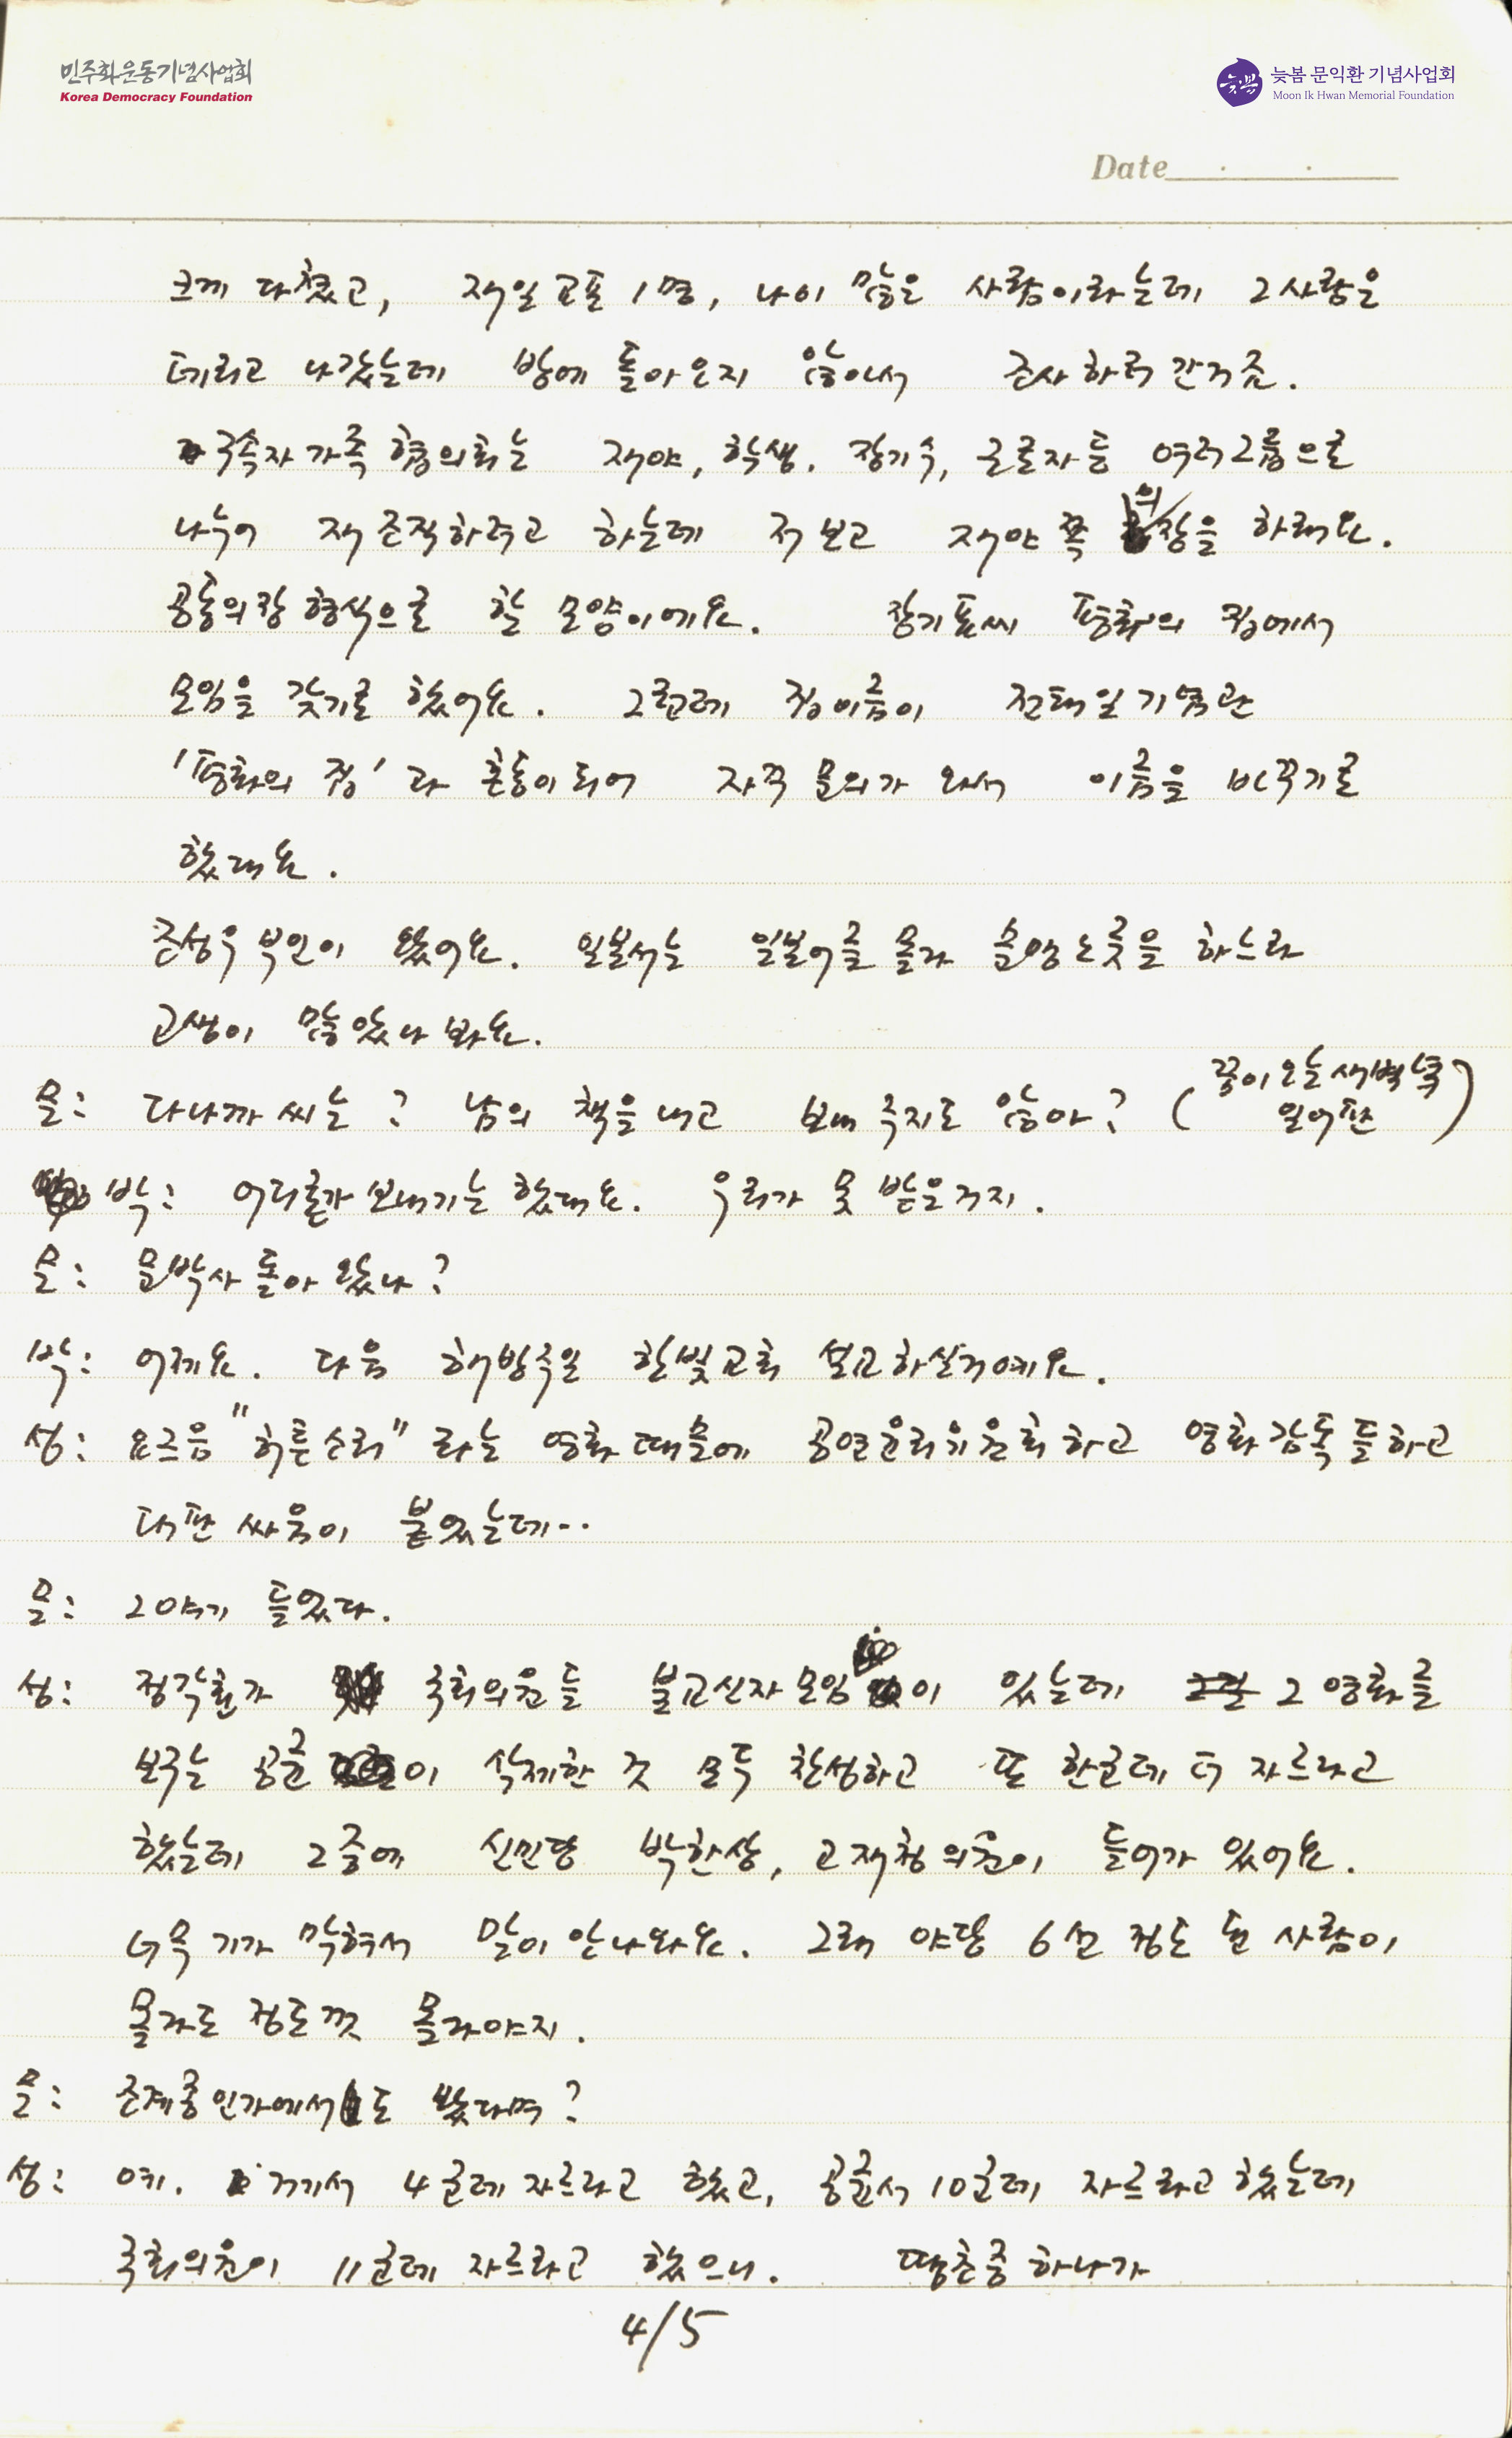 민주화운동기념사업회
Korea Democracy Foundation
늦봄
늦봄 문익환 기념사업회
Moon Ik Hwan Memorial Foundation
Date
크게 다쳤고, 재일교포 1명, 나이 많은 사람이라는데 2사람을
데리고 나갔는데 방에 돌아오지 않아서 조사하러 간거죠.
구속자가족 협의회는 재야, 학생, 장기수, 근로자등 여러그룹으로
나누어 재조직하려고 하는데 저보고 재야쪽 의장을 하래요.
공동의장 형식으로 할 모양이에요. 장기표씨 평화의 집에서
모임을 갖기로 했어요. 그런데 집이름이 전태일기념관
'평화의 집'과 혼동이 되어 자꾸 문의가 와서 이름을 바꾸기로
했대요.
조성우 부인이 왔어요. 일본서는 일본어를 몰라 벙어리노릇을 하느라
고생이 많았나봐요.
문: 다나까씨는? 남의 책을 내고 보내주지도 않아? (꿈이 오는 새벽녘 일어판)
박: 어디론가 보내기는 했대요. 우리가 못 받은거지.
문: 문박사 돌아왔나?
박: 어제요. 다음 해방주일 한빛교회 설교하실거예요.
성: 요즈음 "허튼소리"라는 영화 때문에 공연윤리위원회하고 영화감독들하고
대판싸움이 붙었는데..
문: 그 얘기 들었다.
성: 정각회가 국회의원들 불교신자모임이 있는데 그 영화를
보구는 공륜이 삭제한 것 모두 찬성하고 또 한군데 더 자르라고
했는데 그 중에 신민당 박한상, 고재청의원이 들어가 있어요.
너무 기가 막혀서 말이 안나와요. 그래 야당 6선 정도 된 사람이
몰라도 정도껏 몰라야지.
문: 조계종인가에서도 봤다며?
성: 예. 거기서 4군데 자르라고 했고, 공륜서 10군데 자르라고 했는데
국회의원이 11군데 자르라고 했으니. 땡초중 하나가
4/5